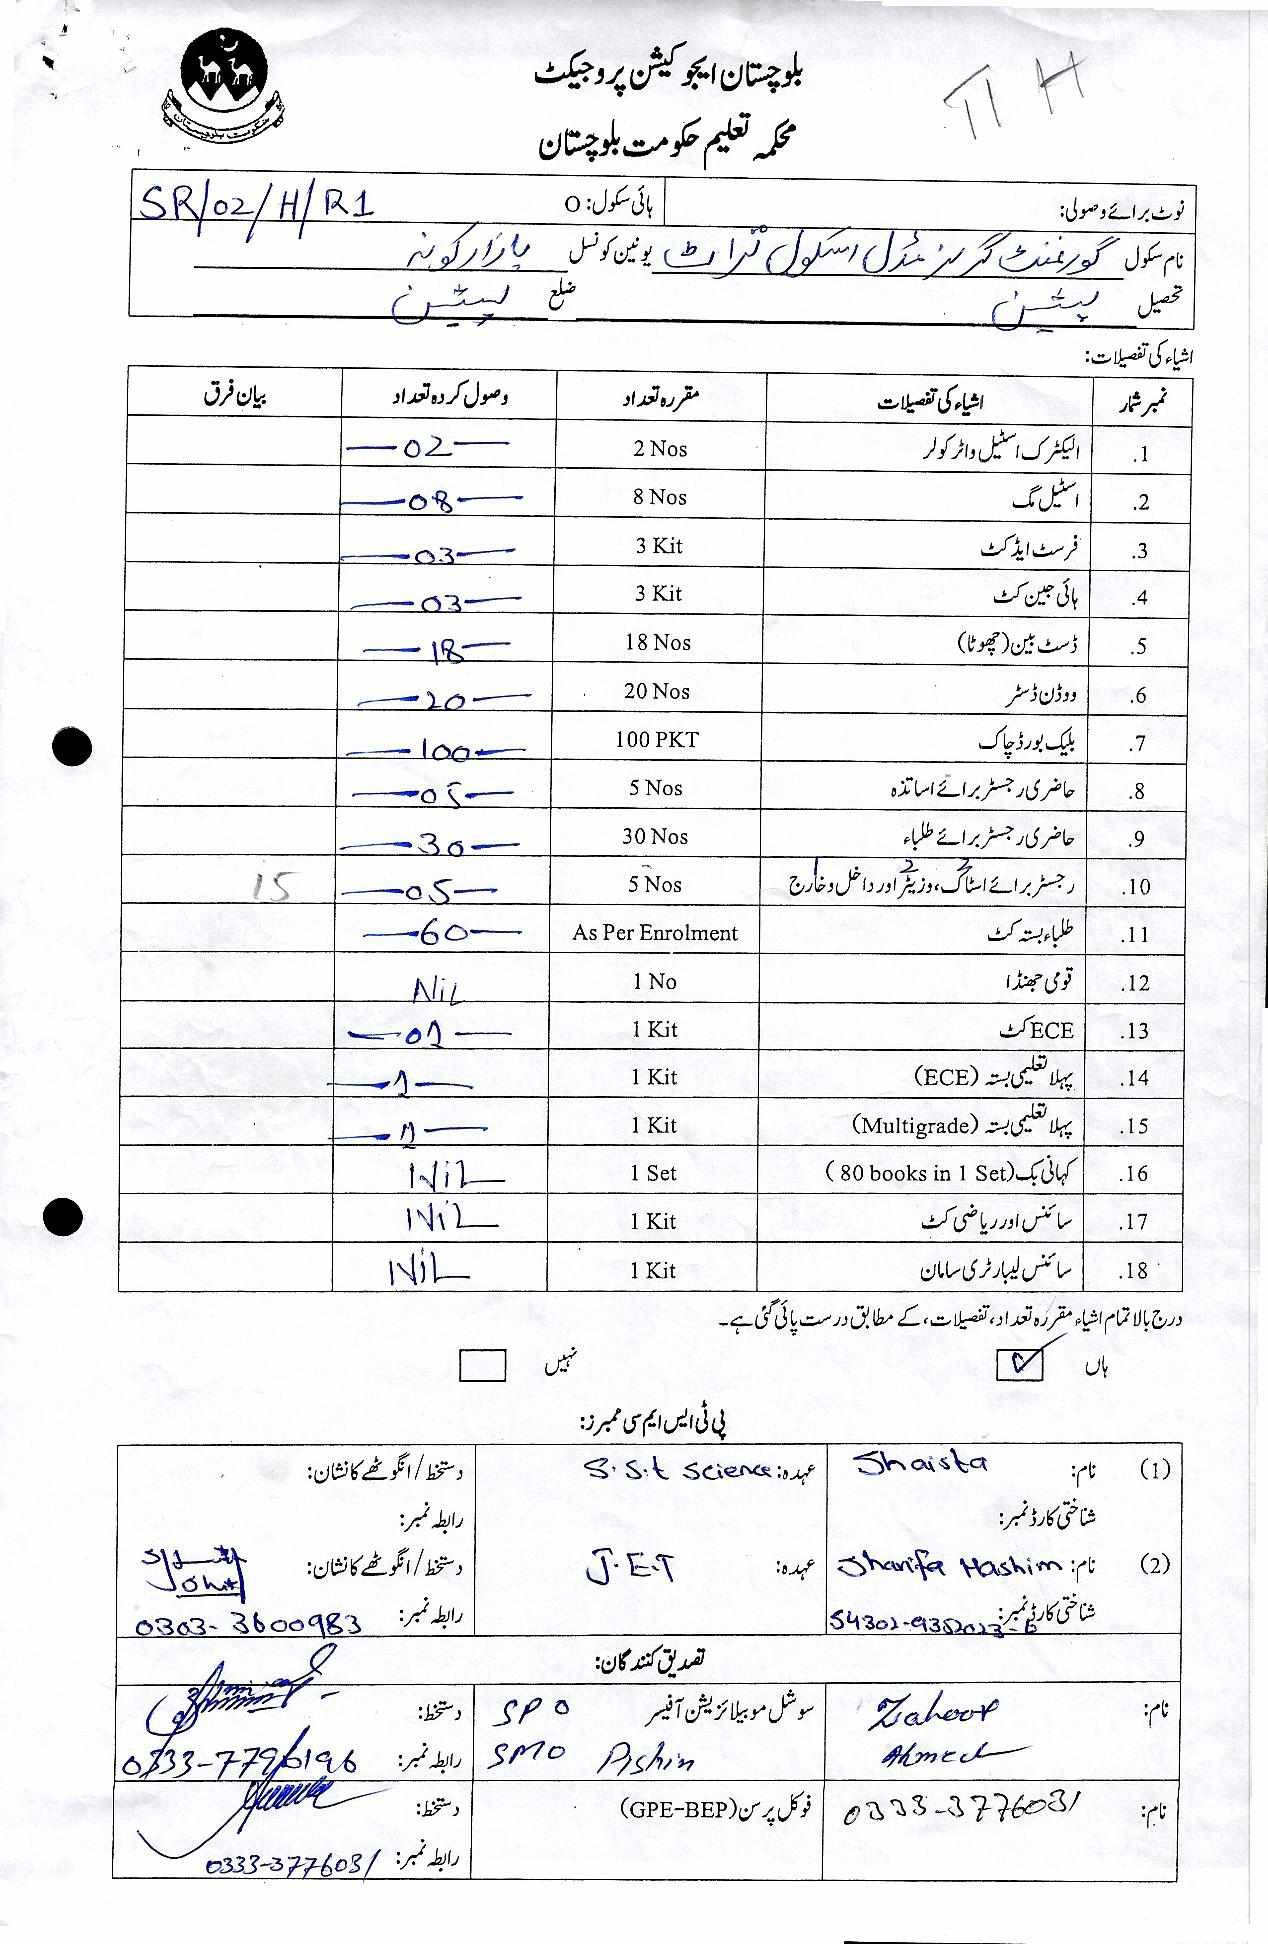 حکومت بلوچستان
بلوچستان ایجوکیشن پروجیکٹ
محکمہ تعلیم حکومت بلوچستان
نوٹ برائے وصولی: ہائی سکول: O SR/02/H/R1
نام سکول گورنمنٹ گرلز مڈل اسکول تراٹ یونین کونسل بازار کونہ
تحصیل پشین ضلع پشین
اشیاء کی تفصیلات:
نمبر شمار اشیاء کی تفصیلات مقررہ تعداد وصول کردہ تعداد بیان فرق
1. الیکٹرک اسٹیل واٹر کولر 2 Nos 02
2. اسٹیل مگ 8 Nos 08
3. فرسٹ ایڈ کٹ 3 Kit 03
4. ہائی جین کٹ 3 Kit 03
5. ڈسٹ بین (چھوٹا) 18 Nos 18
6. ووڈن ڈسٹر 20 Nos 20
7. بلیک بورڈ چاک 100 PKT 100
8. حاضری رجسٹر برائے اساتذہ 5 Nos 05
9. حاضری رجسٹر برائے طلباء 30 Nos 30
10. رجسٹر برائے اسٹاک، وزیٹر اور داخل و خارج 5 Nos 05 15
11. طلباء بستہ کٹ As Per Enrolment 60
12. قومی جھنڈا 1 No Nil
13. ECE کٹ 1 Kit 01
14. پہلا تعلیمی بستہ (ECE) 1 Kit 1
15. پہلا تعلیمی بستہ (Multigrade) 1 Kit 1
16. کہانی بک (80 books in 1 Set) 1 Set Nil
17. سائنس اور ریاضی کٹ 1 Kit Nil
18. سائنس لیبارٹری سامان 1 Kit Nil
درج بالا تمام اشیاء مقررہ تعداد، تفصیلات، کے مطابق درست پائی گئی ہے۔
ہاں ✓ نہیں
پی ٹی ایس ایم سی ممبرز:
(1) نام: Shaista عہدہ: S.S.t Science دستخط/انگوٹھے کا نشان:
شناختی کارڈ نمبر: رابطہ نمبر:
(2) نام: Sharifa Hashim عہدہ: J.E.T دستخط/انگوٹھے کا نشان:
شناختی کارڈ نمبر: 54302-9352023-6 رابطہ نمبر: 0303-3600983
تصدیق کنندگان:
نام: Zahoor Ahmed سوشل موبیلائزیشن آفیسر SPO دستخط:
SMO Pishin رابطہ نمبر: 0333-7796196
نام: 0333-3776031 فوکل پرسن (GPE-BEP) دستخط:
رابطہ نمبر: 0333-3776031